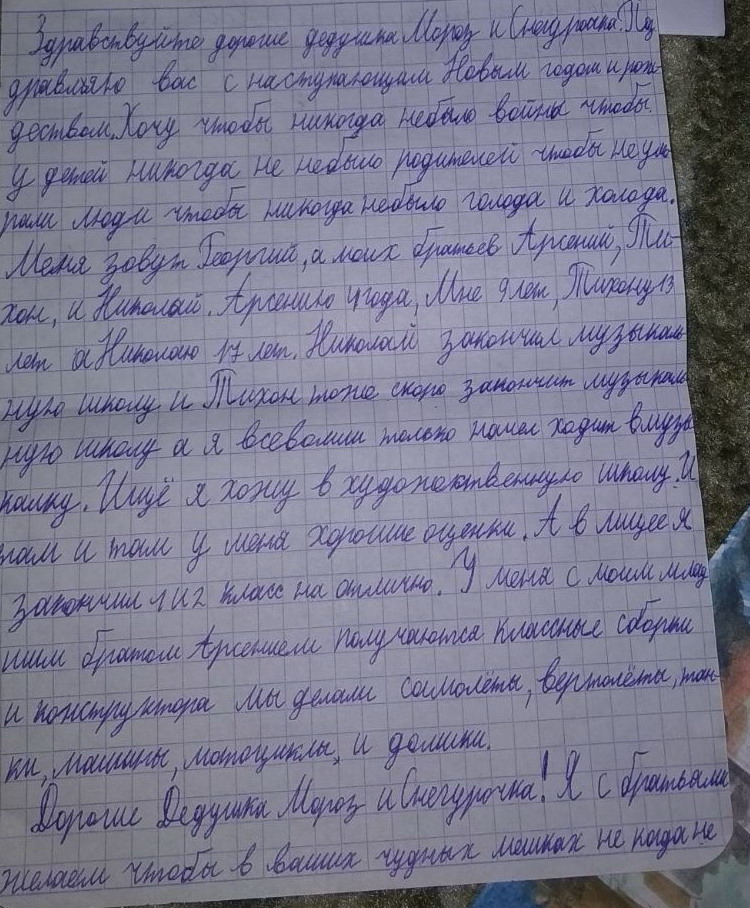 Здравствуйте дорогие дедушка Мороз и Снегурочка. Поз
дравляю вас с наступающим Новым годом и рож
деством. Хочу чтобы никогда небыло войны чтобы
у детей никогда не небыло родителей чтобы не уми
рали люди чтобы никогда небыло голода и холода.
Меня зовут Георгий, а моих братьев Арсений, Ти-
хон, и Николай. Арсению 4 года, Мне 9 лет, Тихону 13
лет а Николаю 17 лет. Николай закончил музыкаль
ную школу и Тихон тоже скоро закончит музыкаль
ную школу а я всеволишь только начел ходит в музы
калку. Ищё я хожу в художественную школу. И
там и там у меня хорошие оценки. А в лицее я
закончил 1 и 2 класс на отлично. У меня с моим млад
шим братом Арсением получаются классные сборки
и конструктора мы делали самолёты, вертолёты, тан-
ки, машины, мотоциклы, и домики.
Дорогие Дедушка Мороз и Снегурочка! Я с братьями
желаем чтобы в ваших чудных мешках не когда не